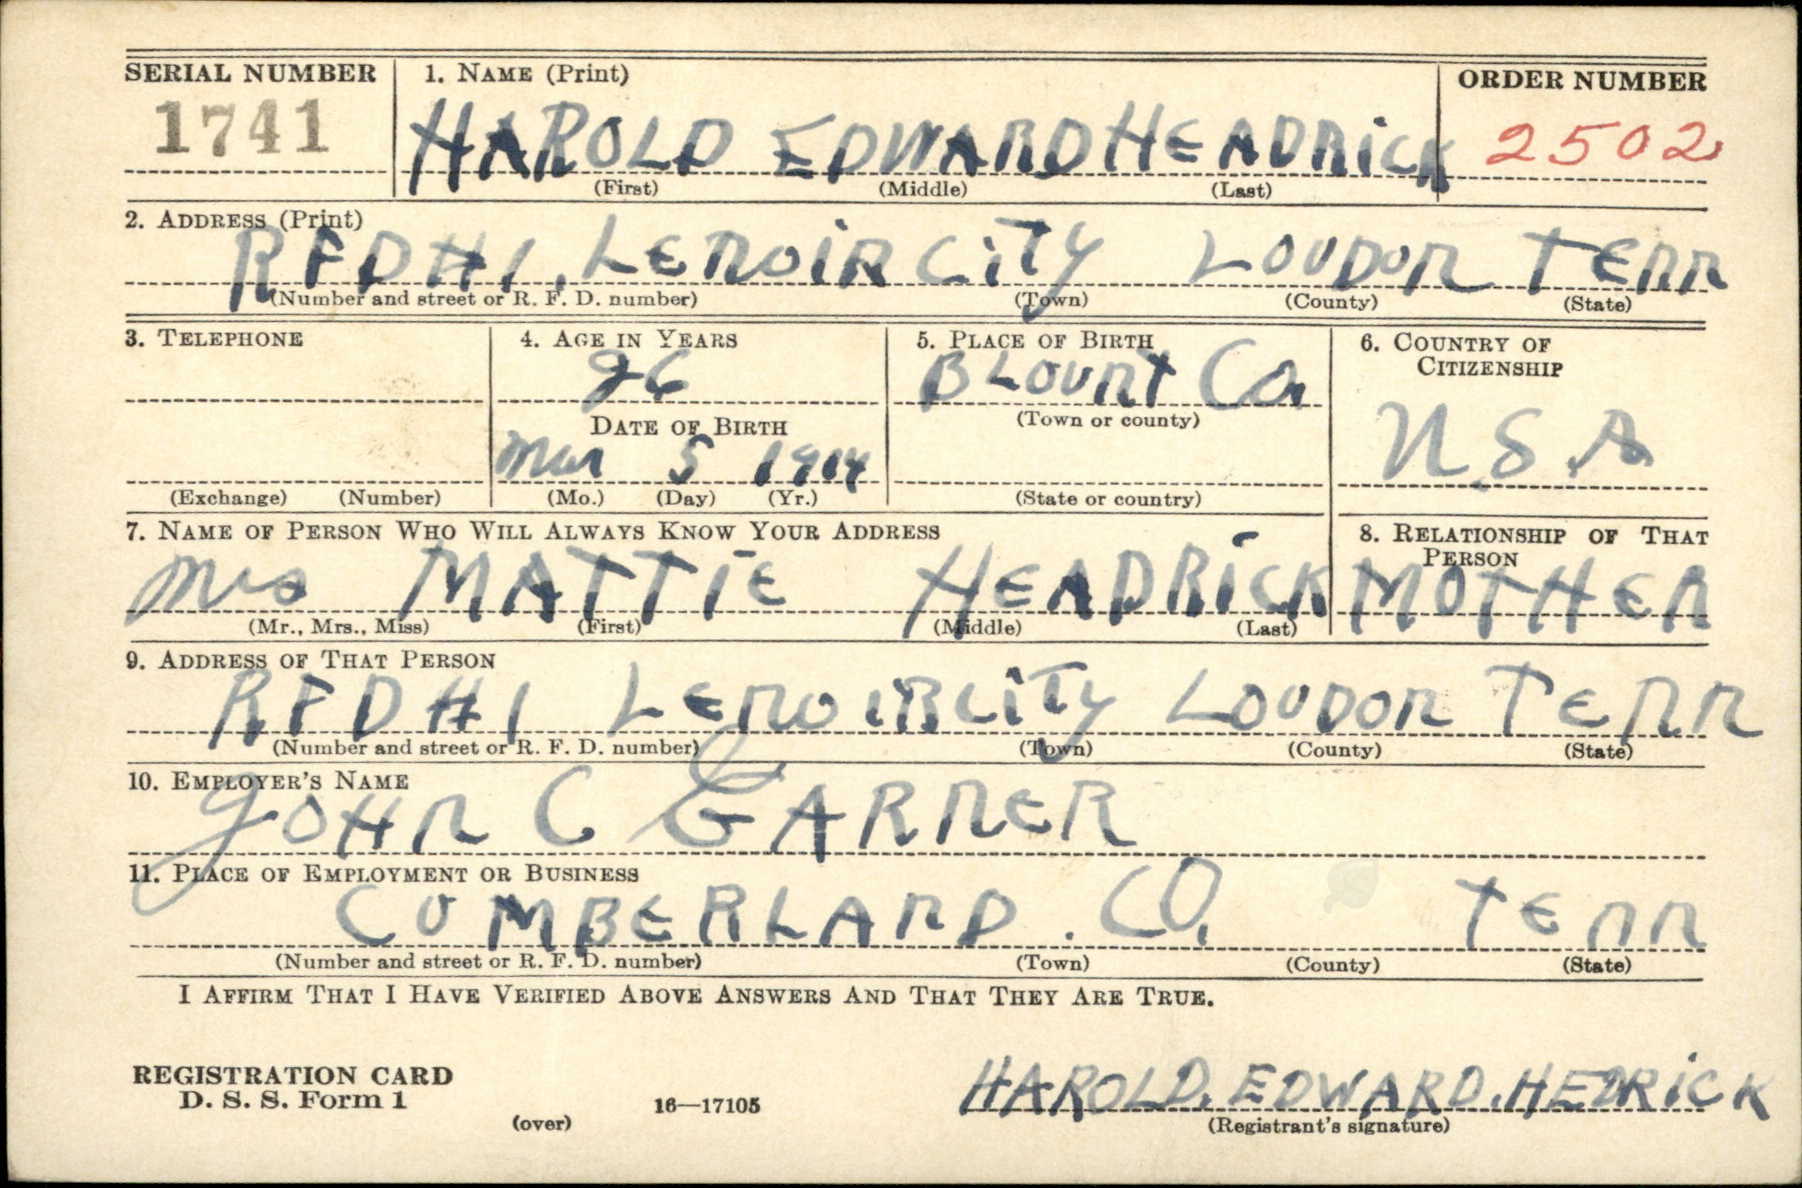 SERIAL NUMBER 1. NAME (Print) ORDER NUMBER
1741 HAROLD EDWARD HEADRICK 2502
(First) (Middle) (Last)
2. ADDRESS (Print)
RFD #1, LENOIR CITY LOUDON TENN
(Number and street or R. F. D. number) (Town) (County) (State)
3. TELEPHONE 4. AGE IN YEARS 5. PLACE OF BIRTH 6. COUNTRY OF CITIZENSHIP
26 BLOUNT Co
DATE OF BIRTH (Town or county)
Mar 5 1914 U.S.A
(Exchange) (Number) (Mo.) (Day) (Yr.) (State or country)
7. NAME OF PERSON WHO WILL ALWAYS KNOW YOUR ADDRESS 8. RELATIONSHIP OF THAT PERSON
Mrs MATTIE HEADRICK MOTHER
(Mr., Mrs., Miss) (First) (Middle) (Last)
9. ADDRESS OF THAT PERSON
RFD #1 LENOIR CITY LOUDON TENN
(Number and street or R. F. D. number) (Town) (County) (State)
10. EMPLOYER'S NAME
JOHN C GARNER
11. PLACE OF EMPLOYMENT OR BUSINESS
CUMBERLAND. CO. TENN
(Number and street or R. F. D. number) (Town) (County) (State)
I AFFIRM THAT I HAVE VERIFIED ABOVE ANSWERS AND THAT THEY ARE TRUE.
REGISTRATION CARD
D. S. S. Form 1 16—17105 HAROLD. EDWARD. HEDRICK
(over) (Registrant's signature)